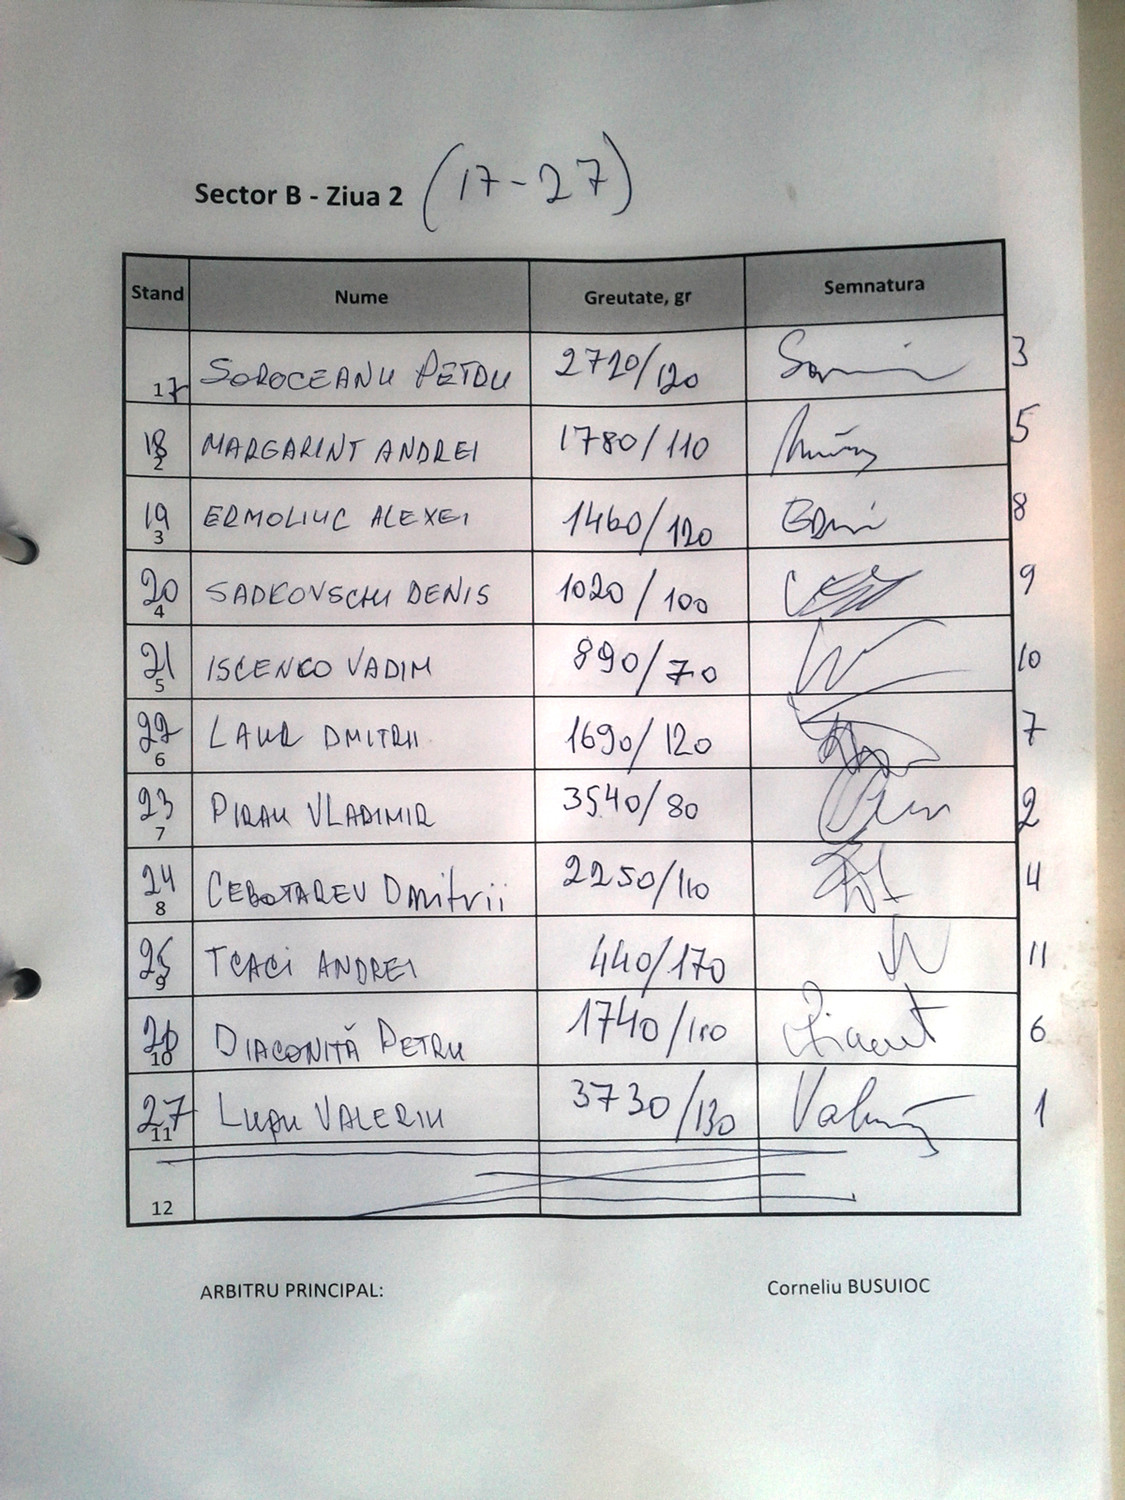 Sector B - Ziua 2 (17-27)
Stand Nume Greutate, gr Semnatura
17 SOROCEANU PETRU 2720/120 3
18 2 MARGARINT ANDREI 1780/110 5
19 3 ERMOLIUC ALEXEI 1460/120 8
20 4 SADKOVSCHI DENIS 1020/100 9
21 5 ISCENCO VADIM 890/70 10
22 6 LAUR DMITRII 1690/120 7
23 7 PIRAU VLADIMIR 3540/80 2
24 8 CEBOTAREV Dmitrii 2250/110 4
25 9 TCACI ANDREI 440/170 11
26 10 DIACONIȚĂ PETRU 1740/110 6
27 11 LUPU VALERIU 3730/130 1
12
ARBITRU PRINCIPAL: Corneliu BUSUIOC